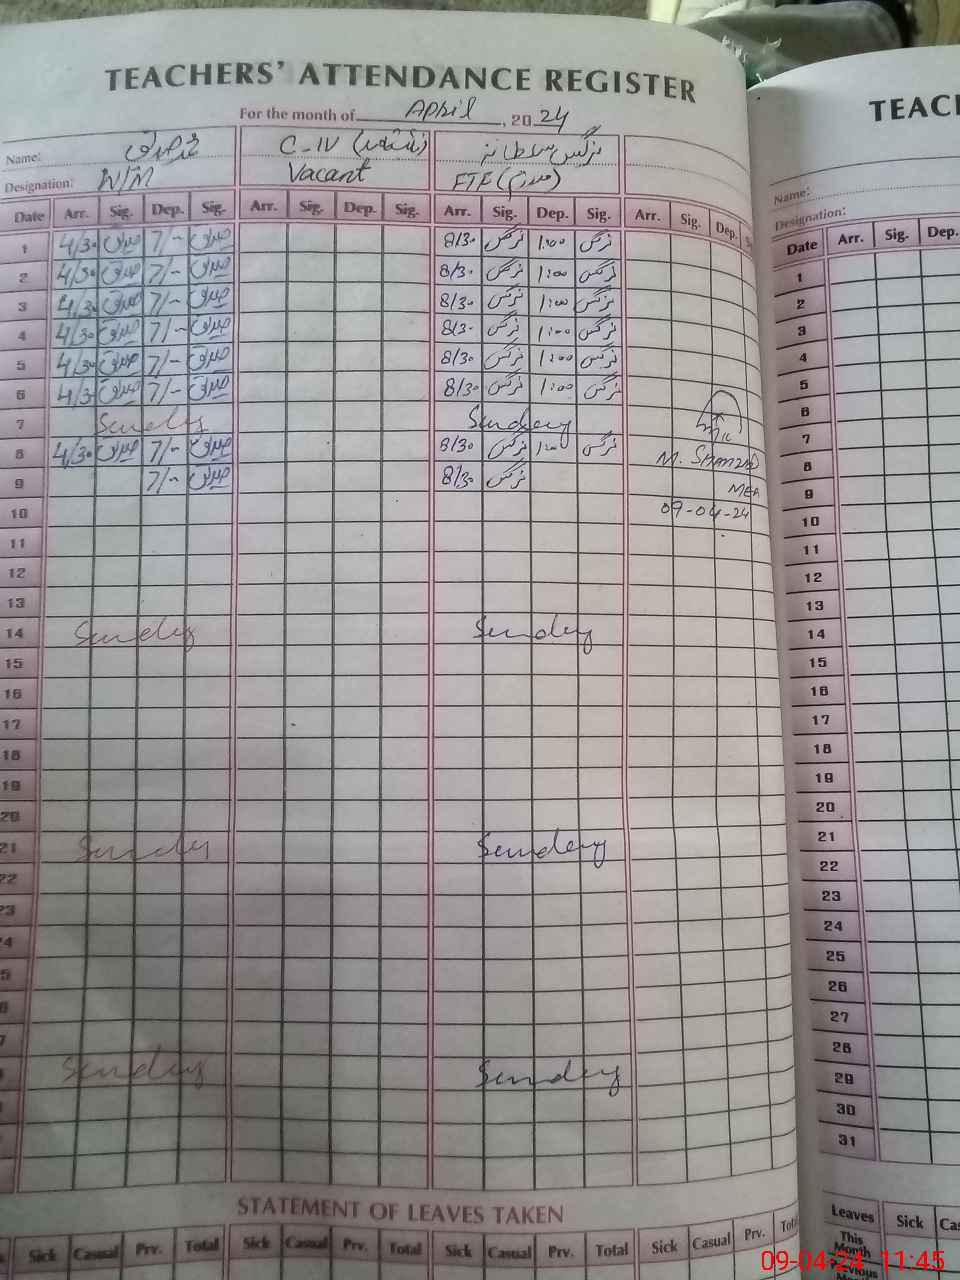 TEACHERS' ATTENDANCE REGISTER
For the month of April, 2024
Name: C-IV نرگس سلطانہ
Designation: W/M Vacant FTF
Date Arr. Sig. Dep. Sig. Arr. Sig. Dep. Sig. Arr. Sig. Dep. Sig. Arr. Sig. Dep.
1 4/30 صدیق 7/- صدیق 8/30 نرگس 1:00 نرگس
2 4/30 صدیق 7/- صدیق 8/30 نرگس 1:00 نرگس
3 4/30 صدیق 7/- صدیق 8/30 نرگس 1:00 نرگس
4 4/30 صدیق 7/- صدیق 8/30 نرگس 1:00 نرگس
5 4/30 صدیق 7/- صدیق 8/30 نرگس 1:00 نرگس
6 4/30 صدیق 7/- صدیق 8/30 نرگس 1:00 نرگس
7 Sunday Sunday
8 4/30 صدیق 7/- صدیق 8/30 نرگس 1:00 نرگس
M.
9 7/- صدیق 8/30 نرگس
MEA
10 09-04-24
11
12
13
14 Sunday Sunday
15
16
17
18
19
20
21 Sunday Sunday
22
23
Sunday Sunday
STATEMENT OF LEAVES TAKEN
Sick Casual Prv. Total Sick Casual Prv. Total Sick Casual Prv. Total Sick Casual Prv. Total
TEAC
Name:
Designation:
Date Arr. Sig. Dep.
1
2
3
4
5
6
7
8
9
10
11
12
13
14
15
16
17
18
19
20
21
22
23
24
25
26
27
28
29
30
31
Leaves Sick Cas
This Month
Previous
09-04-24 11:45